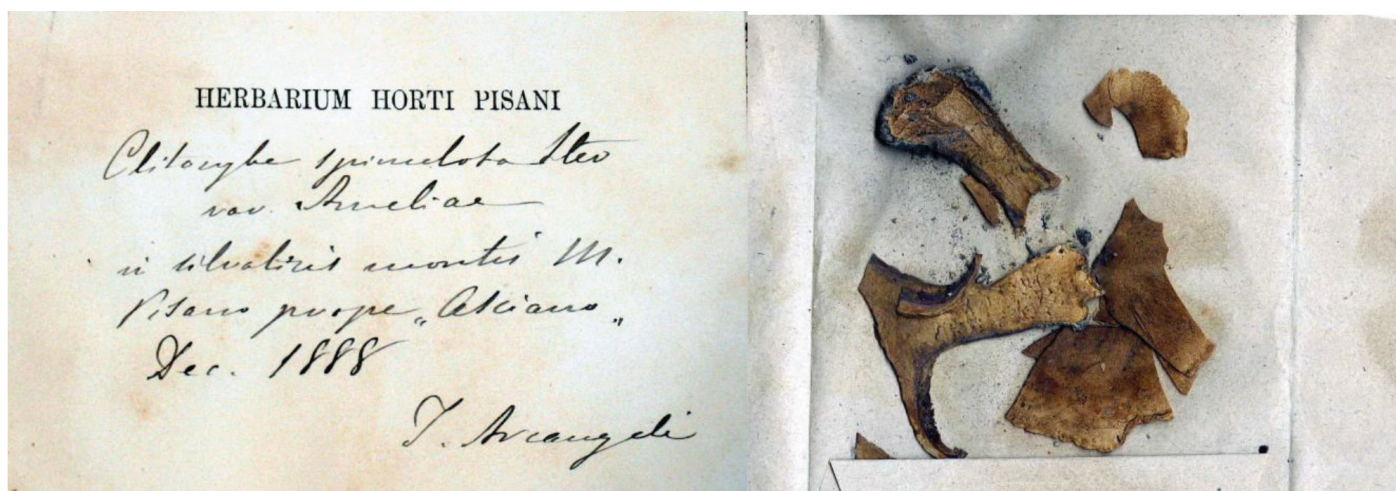 HERBARIUM HORTI PISANI
Clitocybe spinulosa Stev
var. Ameliae
in silvaticis montis M.
Pisano prope „Asciano„
Dec. 1888
J. Arcangeli